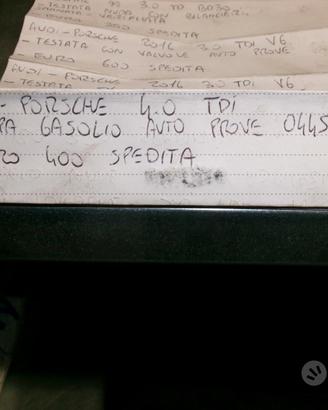 TESTATA 3.0 TD BOBO
NUDA CON BILANCIERI
EURO SPEDITA
AUDI - PORSCHE 2016 3.0 TDI V6
- TESTATA CON VALVOLE AUTO PROVE
- EURO 600 SPEDITA
AUDI - PORSCHE 2016 3.0 TDI V6
- TESTATA
- PORSCHE 4.0 TDI
PA GASOLIO AUTO PROVE 0445
RO 400 SPEDITA